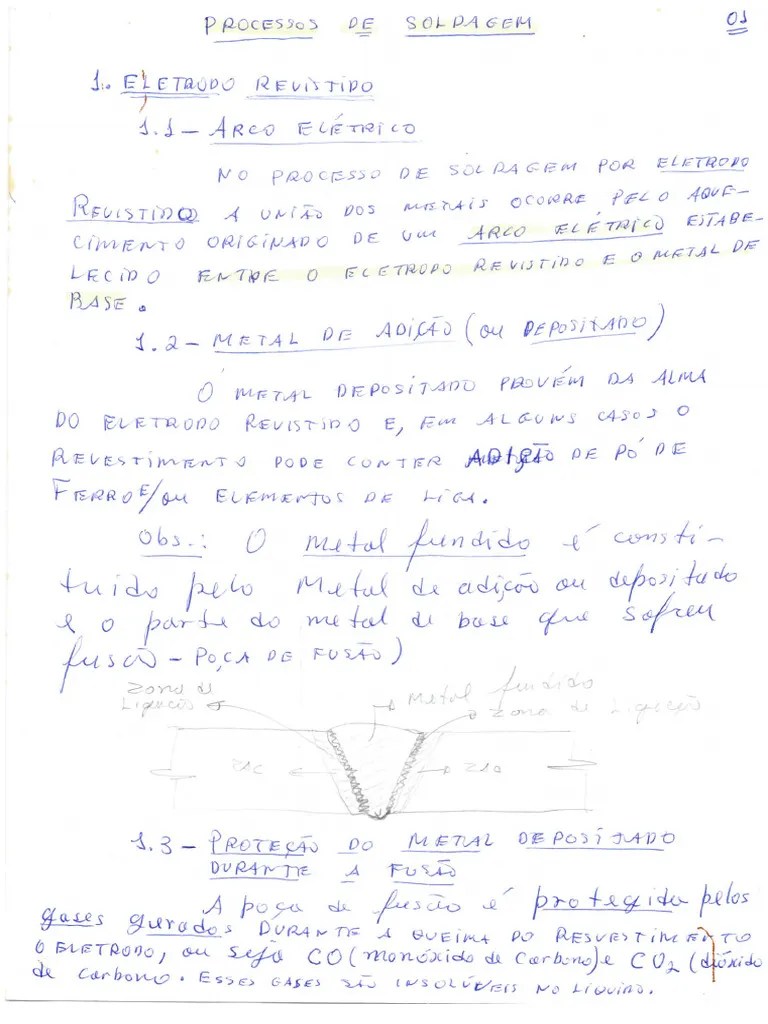 PROCESSOS DE SOLDAGEM 01
1. ELETRODO REVISTIDO
1.1 - ARCO ELÉTRICO
NO PROCESSO DE SOLDAGEM POR ELETRODO
REVISTIDO A UNIÃO DOS METAIS OCORRE PELO AQUE-
CIMENTO ORIGINADO DE UM ARCO ELÉTRICO ESTABE-
LECIDO ENTRE O ELETRODO REVISTIDO E O METAL DE
BASE.
1.2 - METAL DE ADIÇÃO (ou DEPOSITADO)
O METAL DEPOSITADO PROVÉM DA ALMA
DO ELETRODO REVISTIDO E, EM ALGUNS CASOS O
REVESTIMENTO PODE CONTER ADIÇÃO DE PÓ DE
FERRO E/ou ELEMENTOS DE LIGA.
Obs.: O metal fundido é consti-
tuido pelo Metal de adição ou depositado
e o parte do metal de base que sofreu
fusão - POÇA DE FUSÃO)
Zona de Ligação
Metal fundido
zona de Ligação
ZAC ZAC
1.3 - PROTEÇÃO DO METAL DEPOSITADO
DURANTE A FUSÃO
A poça de fusão é protegida pelos
gases gerados DURANTE A QUEIMA DO RESVESTIMENTO
O ELETRODO, ou seja CO (monóxido de Carbono) e CO2 (dióxido
de carbono. ESSES GASES SÃO INSOLÚVEIS NO LÍQUIDO.